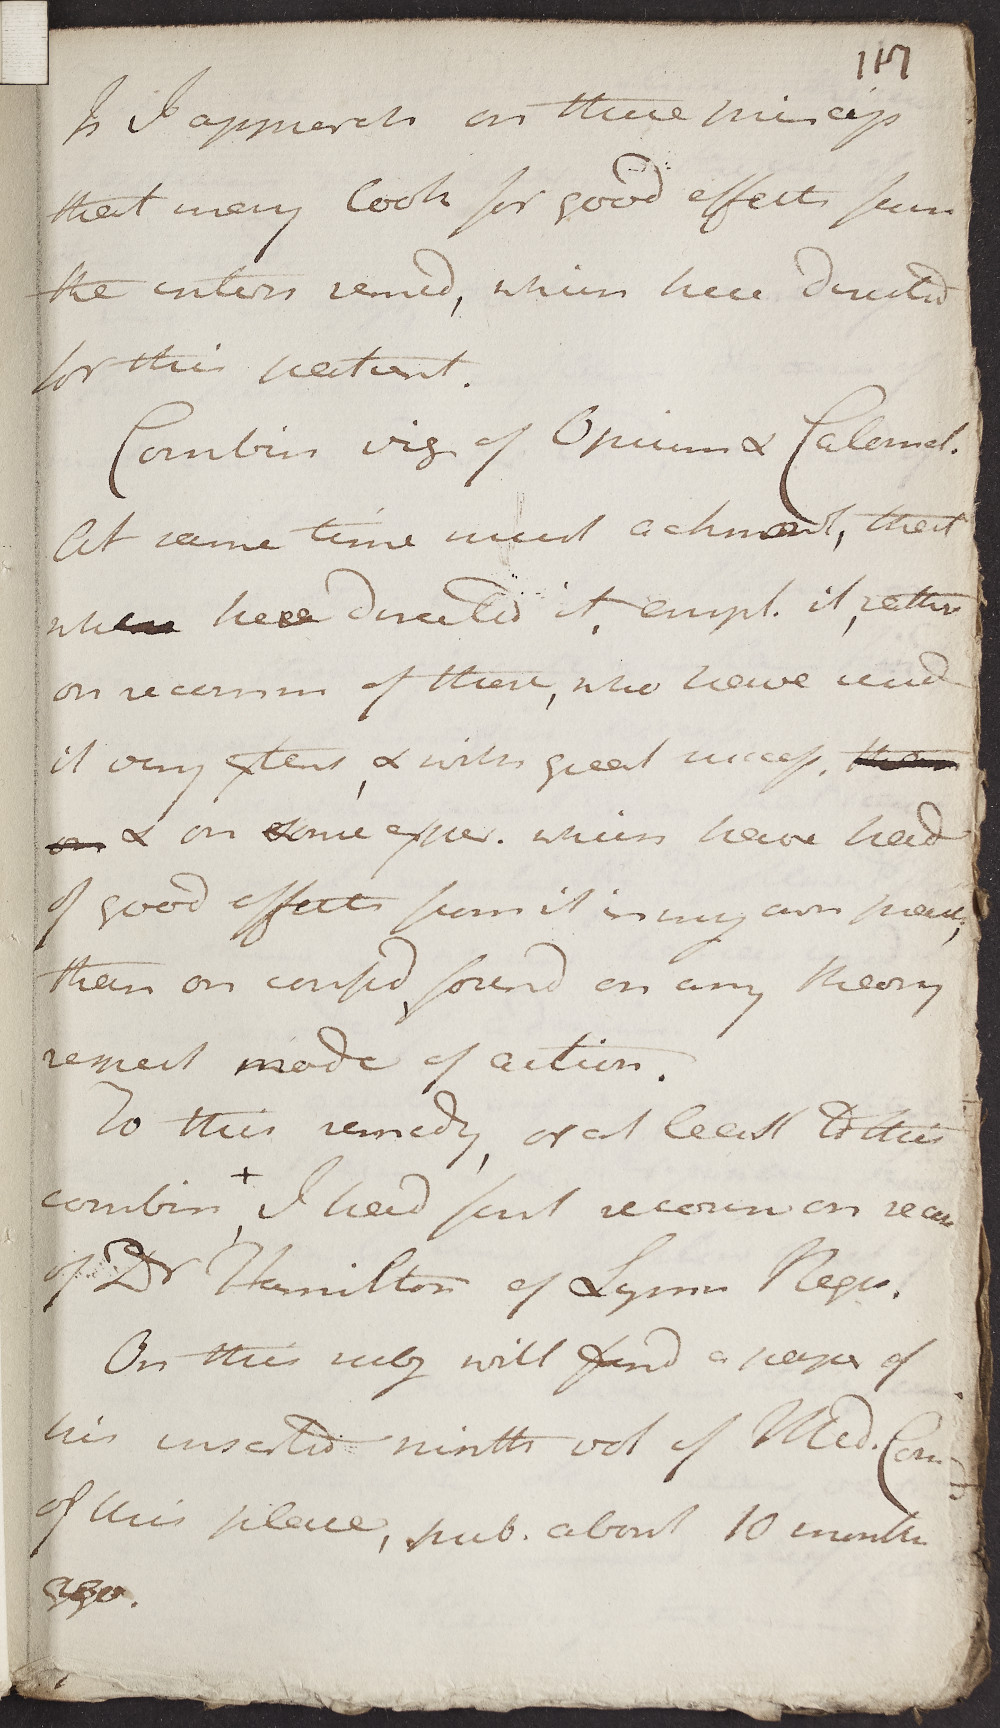 117
It I apprehh on these princip
that may look for good effects from
the intern remed, which have directed
for this patient.
Combin viz of Opium & Calomel.
At same time must acknowl, that
when have directed it, empl. it, rather
on recomm of those, who have used
it very extens, & with great success,
& on some exper. which have had
of good effects from it in my own pract,
than on consid, found on any theory
respect mode of action.
To this remedy, or at least to this
combin +, I had first recour on recom
of Dr Hamilton of Lynn Regis.
On this subj will find a paper of
his inserted ninth vol of Med. Com
of this place, pub. about 10 month
ago.